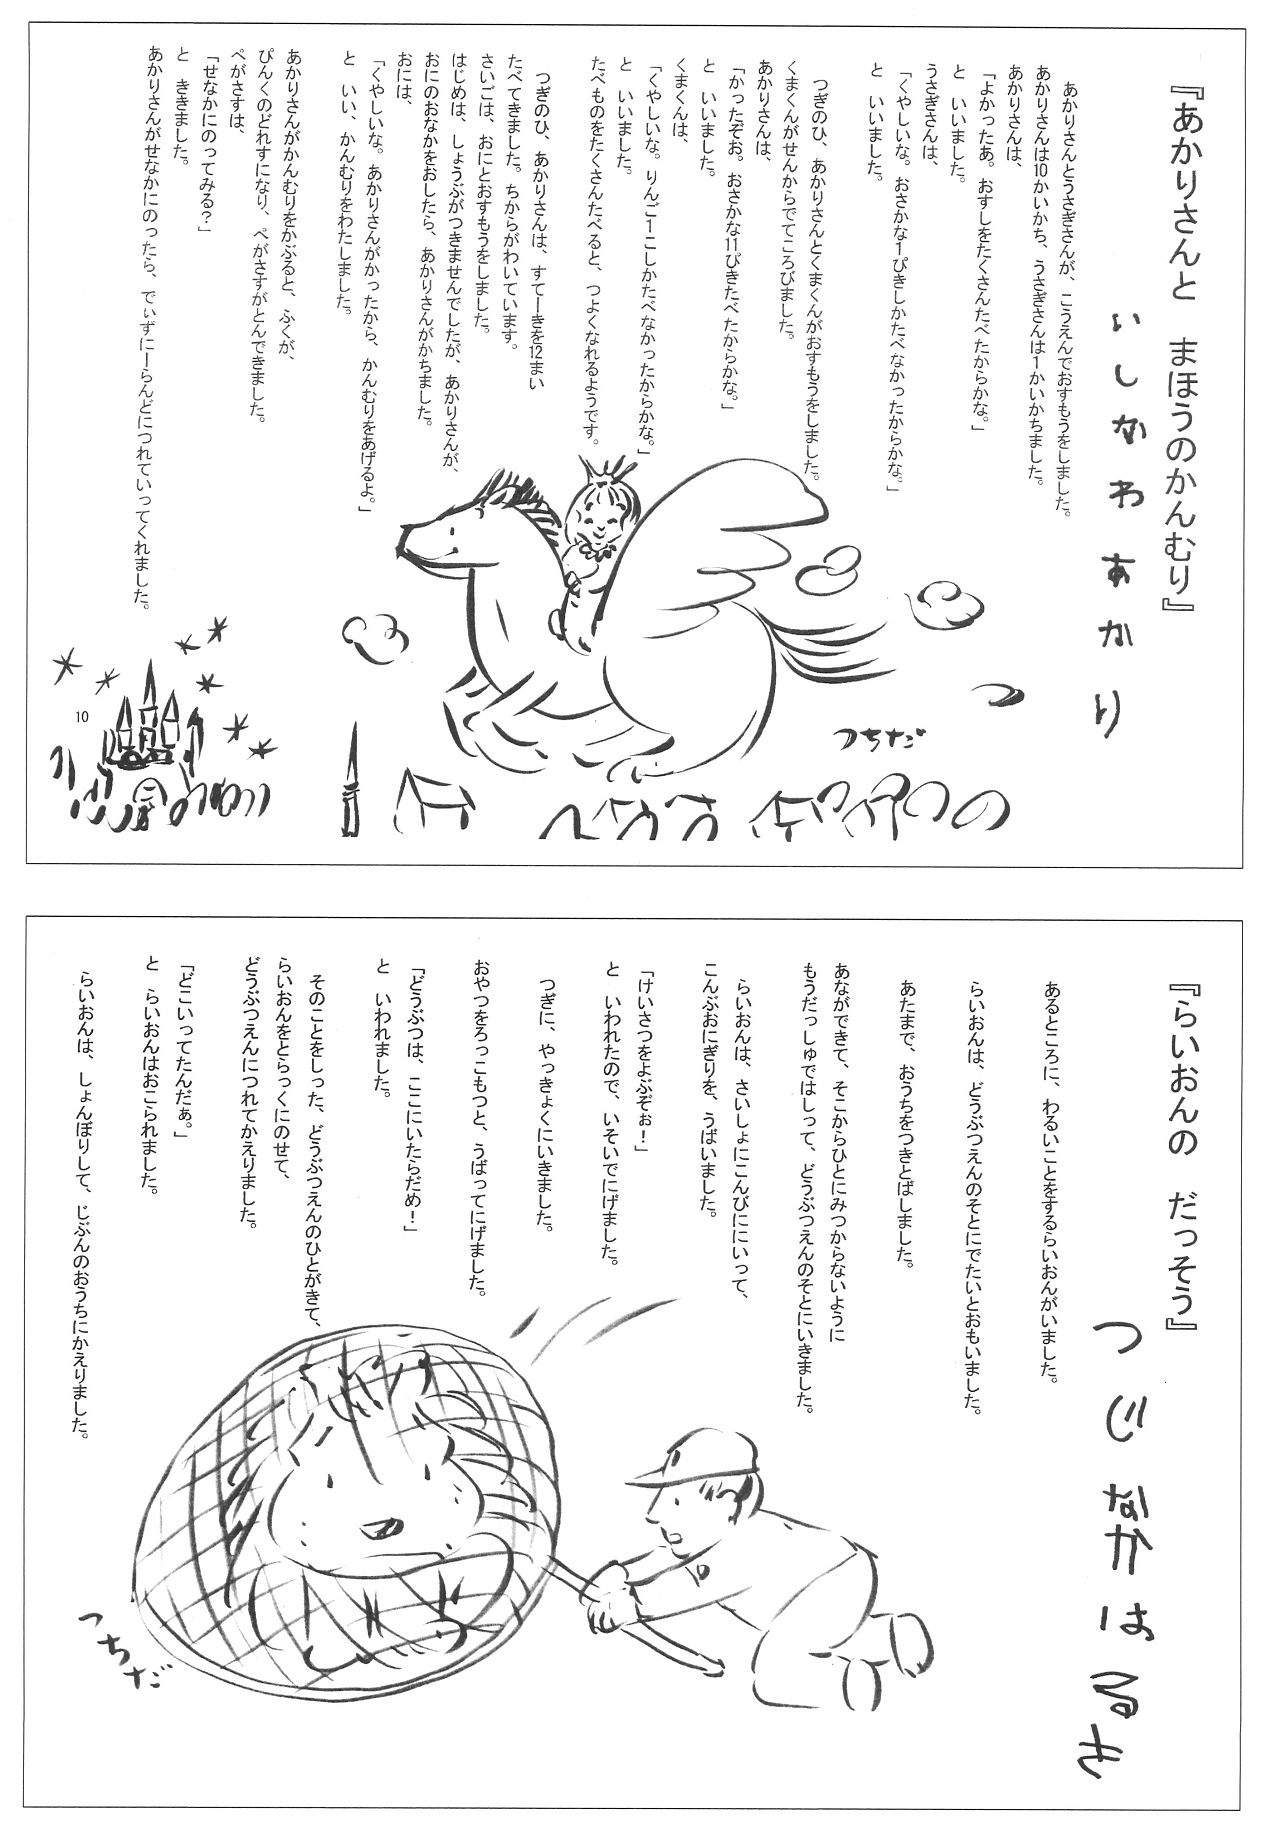 『あかりさんと　まほうのかんむり』
いしかわあかり
あかりさんとうさぎさんが、こうえんでおすもうをしました。
あかりさんは10かいかち、うさぎさんは1かいかちました。
あかりさんは、
「よかったあ。おすしをたくさんたべたからかな。」
と　いいました。
うさぎさんは、
「くやしいな。おさかな1ぴきしかたべなかったからかな。」
と　いいました。
つぎのひ、あかりさんとくまくんがおすもうをしました。
くまくんがせんからでてころびました。
あかりさんは、
「かったぞお。おさかな11ぴきたべたからかな。」
と　いいました。
くまくんは、
「くやしいな。りんご1こしかたべなかったからかな。」
と　いいました。
たべものをたくさんたべると、つよくなれるようです。
つぎのひ、あかりさんは、すてーきを12まい
たべてきました。ちからがわいています。
さいごは、おにとおすもうをしました。
はじめは、しょうぶがつきませんでしたが、あかりさんが、
おにのおなかをおしたら、あかりさんがかちました。
おには、
「くやしいな。あかりさんがかったから、かんむりをあげるよ。」
と　いい、かんむりをわたしました。
あかりさんがかんむりをかぶると、ふくが、
ぴんくのどれすになり、ぺがさすがとんできました。
ぺがさすは、
「せなかにのってみる？」
と　ききました。
あかりさんがせなかにのったら、でぃずにーらんどにつれていってくれました。
つちだ
10
『らいおんの　だっそう』
つじなかはるき
あるところに、わるいことをするらいおんがいました。
らいおんは、どうぶつえんのそとにでたいとおもいました。
あたまで、おうちをつきとばしました。
あなができて、そこからひとにみつからないように
もうだっしゅではしって、どうぶつえんのそとにいきました。
らいおんは、さいしょにこんびににいって、
こんぶおにぎりを、うばいました。
「けいさつをよぶぞぉ！」
と　いわれたので、いそいでにげました。
つぎに、やっきょくにいきました。
おやつをろっこもつと、うばってにげました。
「どうぶつは、ここにいたらだめ！」
と　いわれました。
そのことをしった、どうぶつえんのひとがきて、
らいおんをとらっくにのせて、
どうぶつえんにつれてかえりました。
「どこいってたんだぁ。」
と　らいおんはおこられました。
らいおんは、しょんぼりして、じぶんのおうちにかえりました。
つちだ